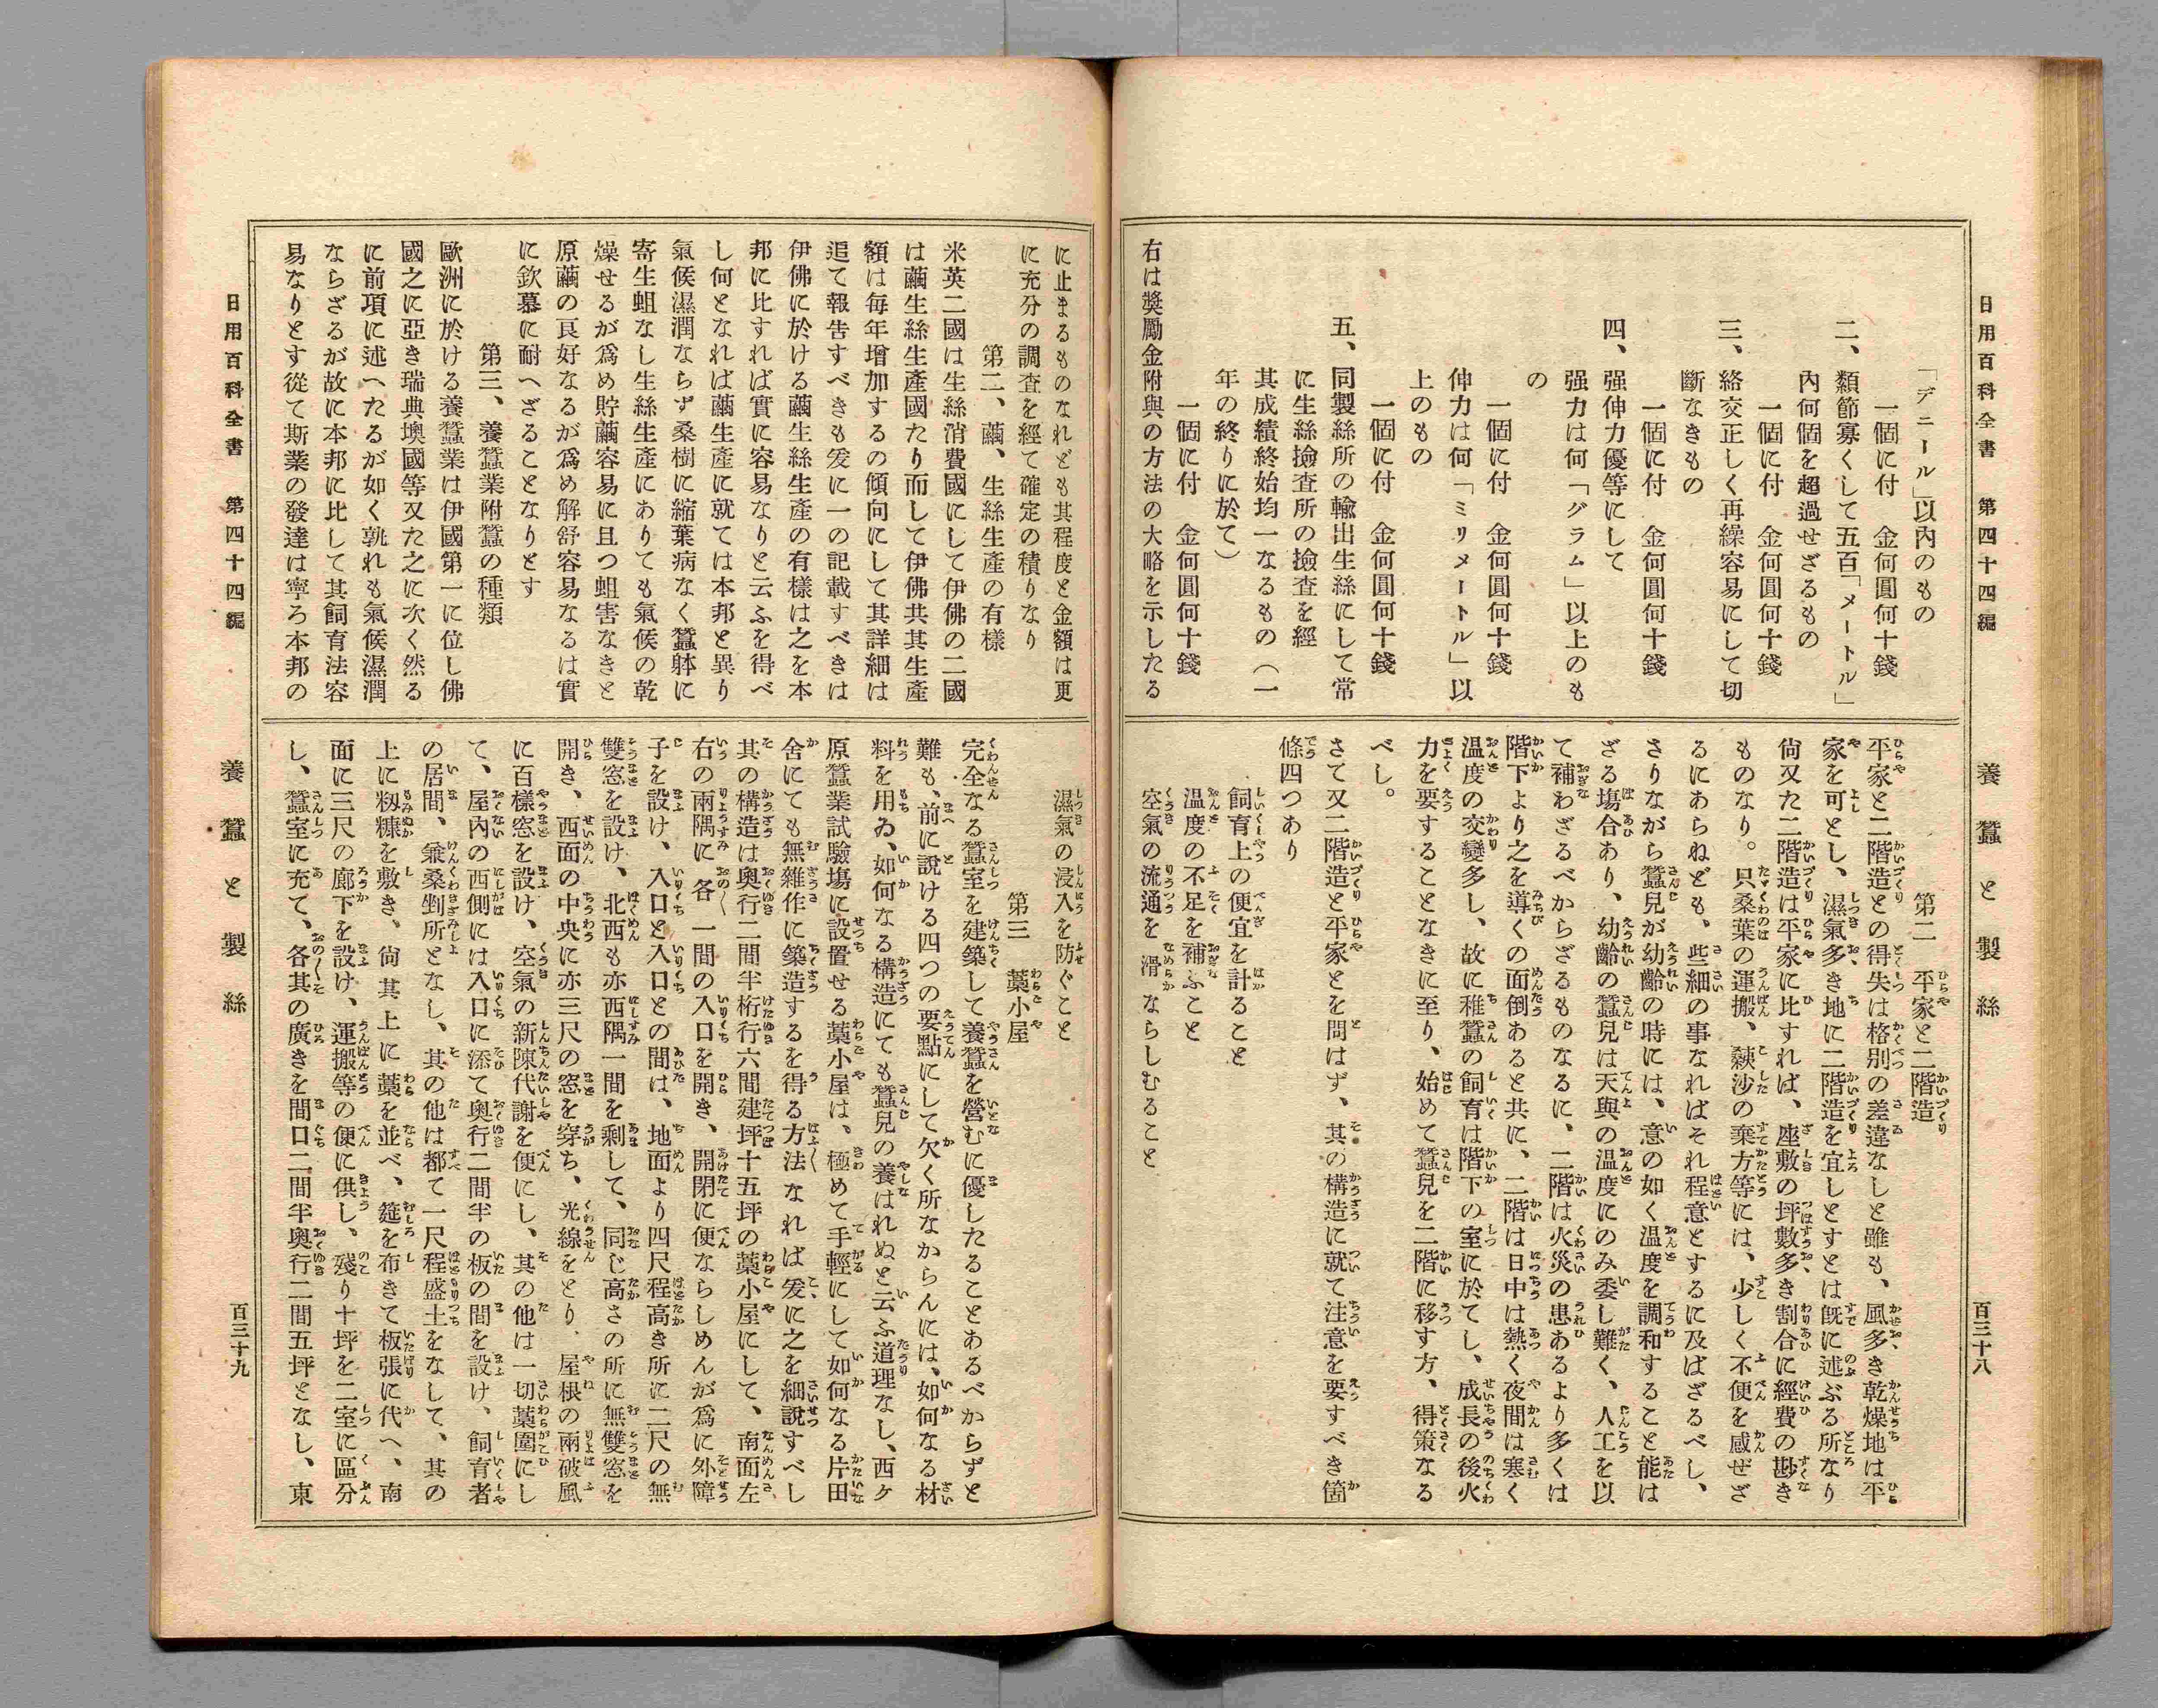 日用百科全書 第四十四編 養蠶と製絲 百三十八
「デニール」以內のもの
一個に付 金何圓何十錢
二、類節寡くして五百「メートル」
內何個を超過せざるもの
一個に付 金何圓何十錢
三、絡交正しく再繰容易にして切
斷なきもの
一個に付 金何圓何十錢
四、强伸力優等にして
强力は何「グラム」以上のも
の
一個に付 金何圓何十錢
伸力は何「ミリメートル」以
上のもの
一個に付 金何圓何十錢
五、同製絲所の輸出生絲にして常
に生絲撿査所の撿査を經
其成績終始均一なるもの（一
年の終りに於て）
一個に付 金何圓何十錢
右は奬勵金附與の方法の大略を示したる
第二 平家と二階造
平家と二階造との得失は格別の差違なしと雖も、風多き乾燥地は平
家を可とし、濕氣多き地に二階造を宜しとすとは既に述ぶる所なり
尙又た二階造は平家に比すれば、座敷の坪數多き割合に經費の尠き
ものなり。只桑葉の運搬、蘓沙の棄方等には、少しく不便を感ぜざ
るにあらねども、些細の事なればそれ程意とするに及ばざるべし、
さりながら蠶兒が幼齡の時には、意の如く溫度を調和すること能は
ざる塲合あり、幼齡の蠶兒は天與の溫度にのみ委し難く、人工を以
て補わざるべからざるものなるに、二階は火災の患あるより多くは
階下より之を導くの面倒あると共に、二階は日中は熱く夜間は寒く
溫度の交變多し、故に稚蠶の飼育は階下の室に於てし、成長の後火
力を要することなきに至り、始めて蠶兒を二階に移す方、得策なる
べし。
さて又二階造と平家とを問はず、其の構造に就て注意を要すべき箇
條四つあり
飼育上の便宜を計ること
溫度の不足を補ふこと
空氣の流通を滑ならしむること
日用百科全書 第四十四編 養蠶と製絲 百三十九
に止まるものなれども其程度と金額は更
に充分の調査を經て確定の積りなり
第二、繭、生絲生產の有樣
米英二國は生絲消費國にして伊佛の二國
は繭生絲生產國たり而して伊佛共其生產
額は每年增加するの傾向にして其詳細は
追て報告すべきも爰に一の記載すべきは
伊佛に於ける繭生絲生產の有樣は之を本
邦に比すれば實に容易なりと云ふを得べ
し何となれば繭生產に就ては本邦と異り
氣候濕潤ならず桑樹に縮葉病なく蠶躰に
寄生蛆なし生絲生產にありても氣候の乾
燥せるが爲め貯繭容易に且つ蛆害なきと
原繭の良好なるが爲め解舒容易なるは實
に欽慕に耐へざることなりとす
第三、養蠶業附蠶の種類
歐洲に於ける養蠶業は伊國第一に位し佛
國之に亞き瑞典墺國等又た之に次く然る
に前項に述へたるが如く孰れも氣候濕潤
ならざるが故に本邦に比して其飼育法容
易なりとす從て斯業の發達は寧ろ本邦の
濕氣の浸入を防ぐこと
第三 藁小屋
完全なる蠶室を建築して養蠶を營むに優したることあるべからずと
難も、前に說ける四つの要點にして欠く所なからんには、如何なる材
料を用ゐ、如何なる構造にても蠶兒の養はれぬと云ふ道理なし、西ヶ
原蠶業試驗塲に設置せる藁小屋は、極めて手輕にして如何なる片田
舍にても無雜作に築造するを得る方法なれば爰に之を細說すべし
其の構造は奧行二間半桁行六間建坪十五坪の藁小屋にして、南面左
右の兩隅に各一間の入口を開き、開閉に便ならしめんが爲に外障
子を設け、入口と入口との間は、地面より四尺程高き所に二尺の無
雙窓を設け、北西も亦西隅一間を剩して、同じ高さの所に無雙窓を
開き、西面の中央に亦三尺の窓を穿ち、光線をとり、屋根の兩破風
に百樣窓を設け、空氣の新陳代謝を便にし、其の他は一切藁圍にし
て、屋內の西側には入口に添て奧行二間半の板の間を設け、飼育者
の居間、兼桑剉所となし、其の他は都て一尺程盛土をなして、其の
上に籾糠を敷き、尙其上に藁を並べ、筵を布きて板張に代へ、南
面に三尺の廊下を設け、運搬等の便に供し、殘り十坪を二室に區分
し、蠶室に充て、各其の廣きを間口二間半奧行二間五坪となし、東